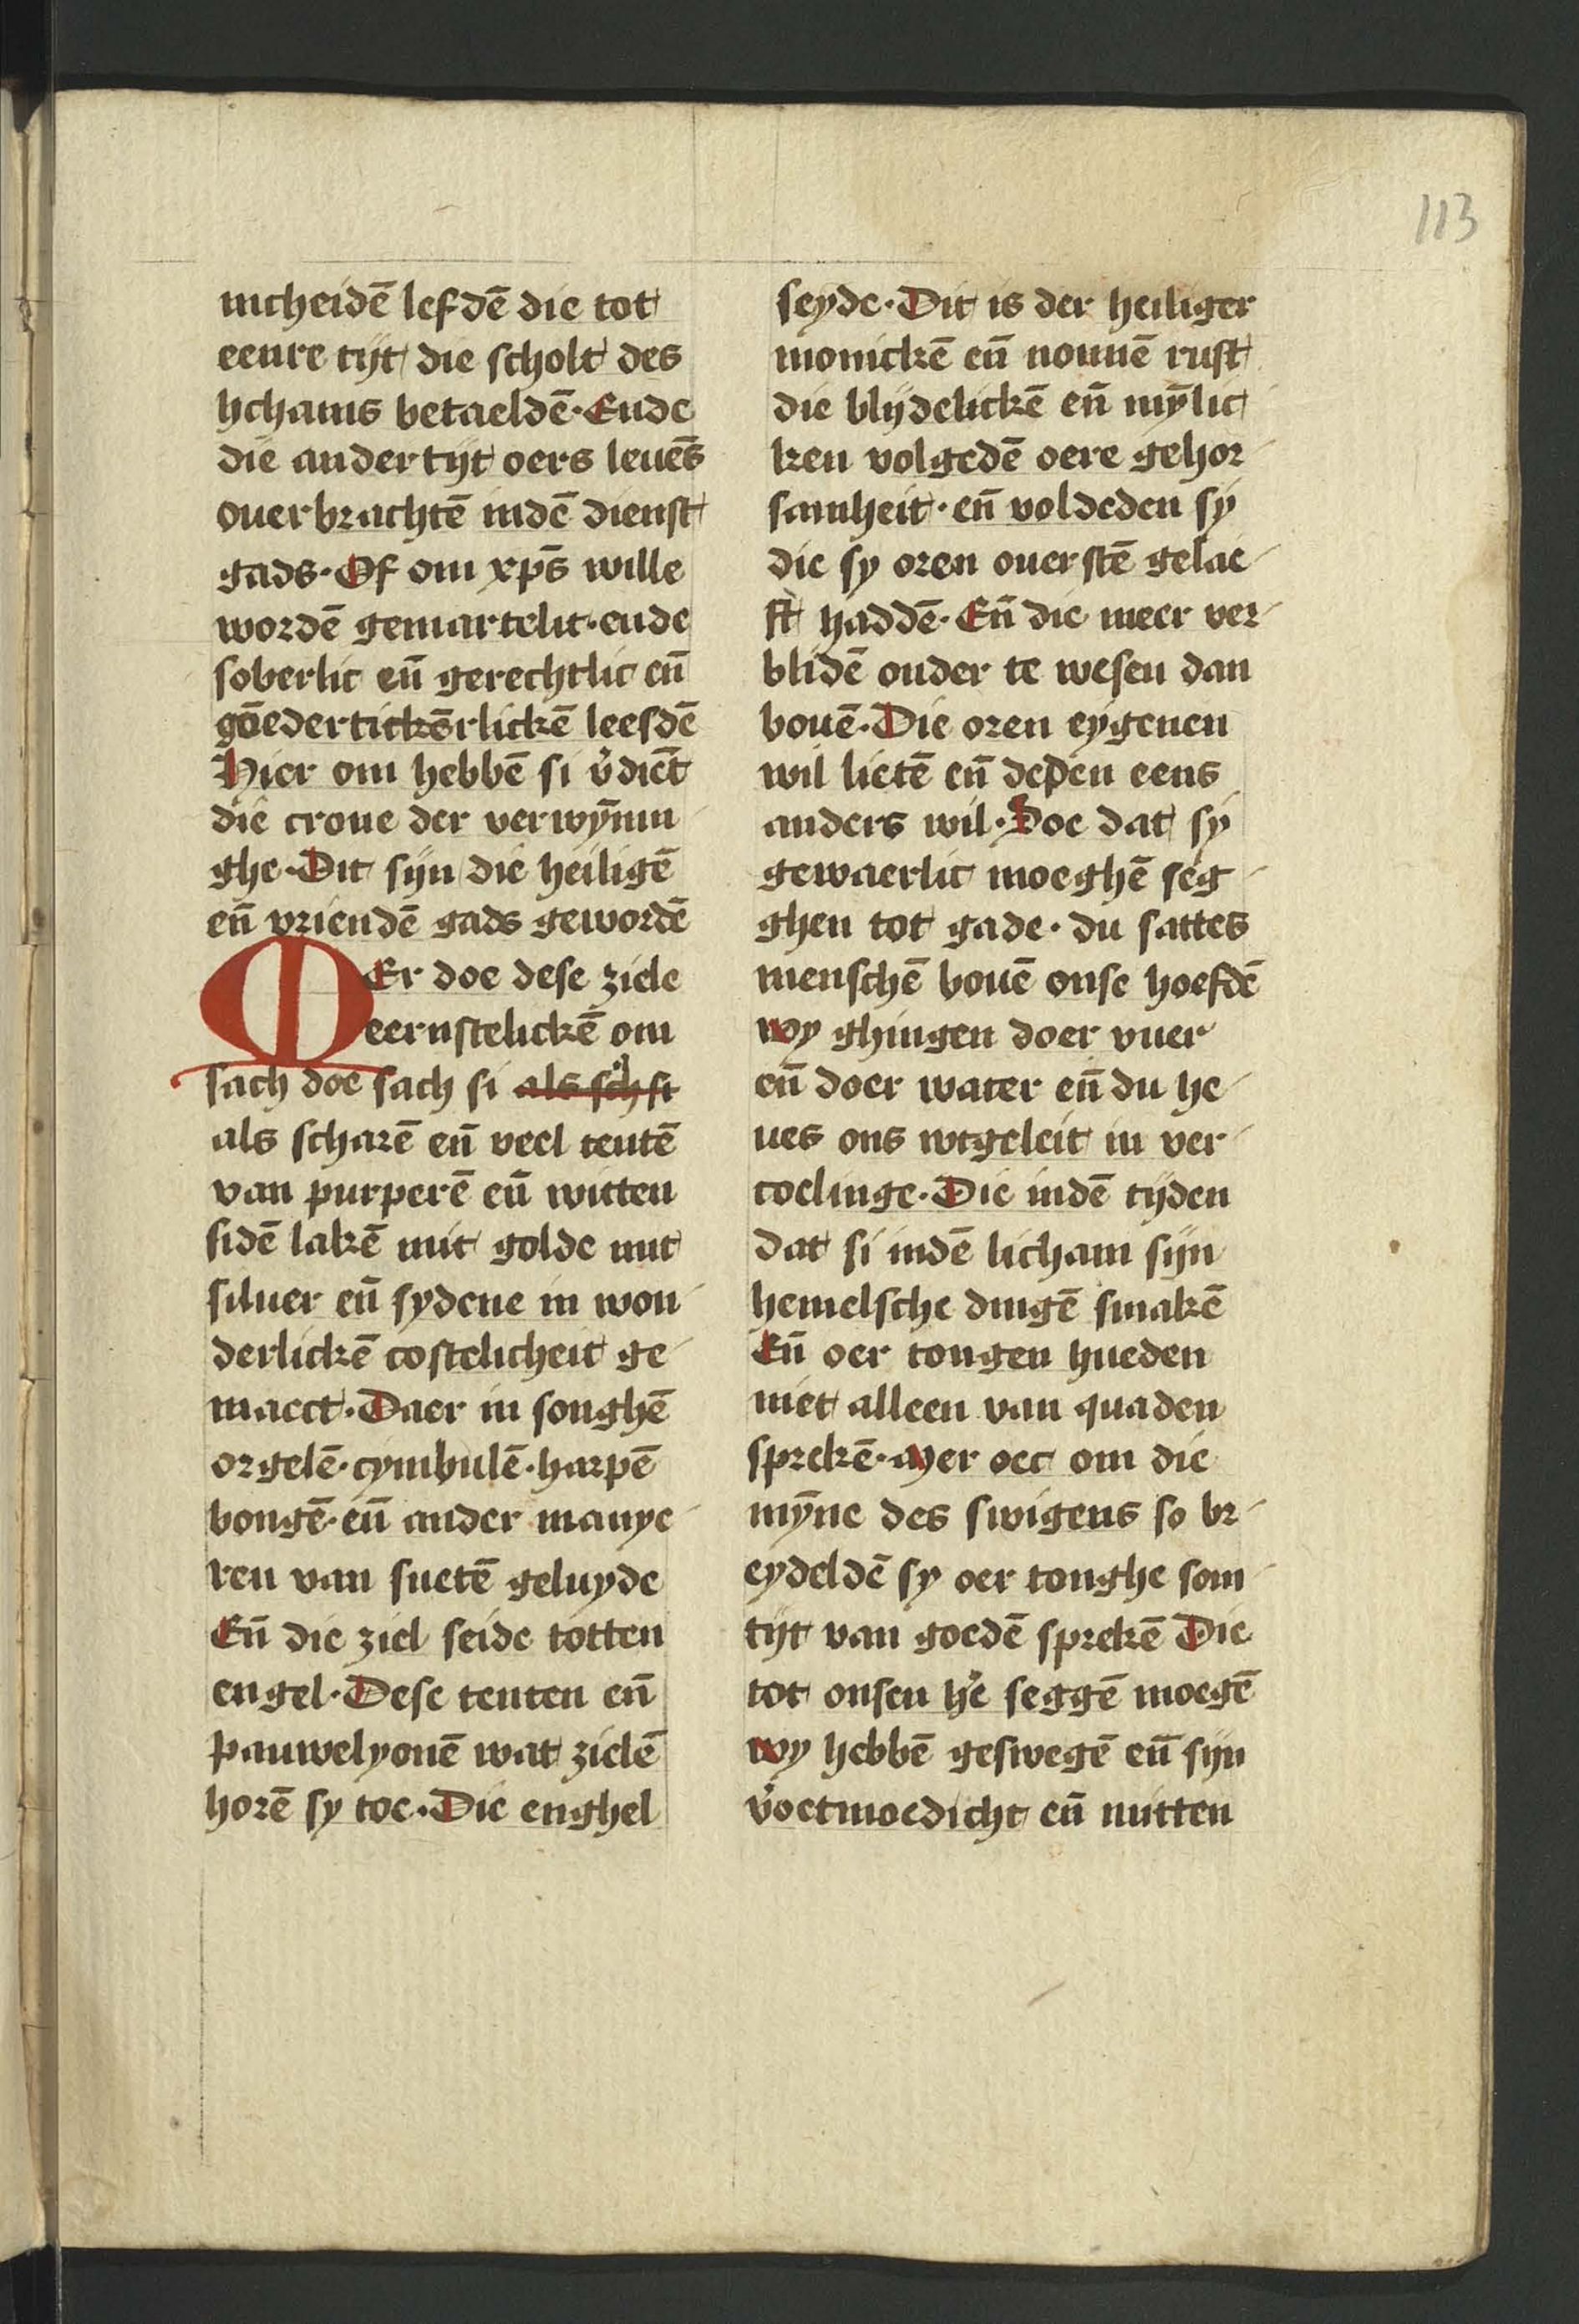 113
nicheidē lefdē die tot
eenre tijt die scholt des
lichams betaeldē. Ende
die ander tijt oers leuēs
ouerbrachtē indē dienst
gads. Of om xp̄s wille
wordē gemartelit. ende
soberlic eñ gerechtlic eñ
gōedertickērlickē leefdē
Hier om hebbē si v̓diēt
die crone der verwȳnin
ghe. Dit sijn die heiligē
eñ vriendē gads gewordē
MEr doe dese ziele
eernstelickē om
sach doe sach si als sch si
als scharē eñ veel tentē
van purperē eñ witten
sidē lakē mit golde mit
siluer eñ sydene in won
derlickē costelicheit ge
maect. Daer in songhē
orgelē. cymbulē. harpē
bongē. eñ ander manye
ren van suetē geluyde
Eñ die ziel seide totten
engel. Dese tenten eñ
pauwelyonē wat zielē
horē sy toe. Die enghel
seyde. Dit is der heiliger
monickē eñ nonnē rust
die blijdelickē eñ mȳlic
ken volgedē oere gehor
samheit. eñ voldeden sy
die sy oren ouerstē gelae
ft haddē. Eñ die meer ver
blidē onder te wesen dan
bouē. Die oren eygenen
wil lietē eñ deden eens
anders wil. Soe dat sy
gewaerlic moeghē seg
ghen tot gade. du sattes
menschē bouē onse hoefdē
wy ghingen doer vuer
eñ doer water eñ du he
ues ons wtgeleit in ver
coelinge. Die indē tijden
dat si indē licham sijn
hemelsche dingē smakē
Eñ oer tongen hueden
niet alleen van quaden
sprekē. Mer oec om die
mȳne des swigens so br
eydeldē sy oer tonghe som
tijt van goedē sprekē Die
tot onsen he̓ seggē moegē
wy hebbē geswegē eñ sijn
v̓oetmoedicht eñ mitten